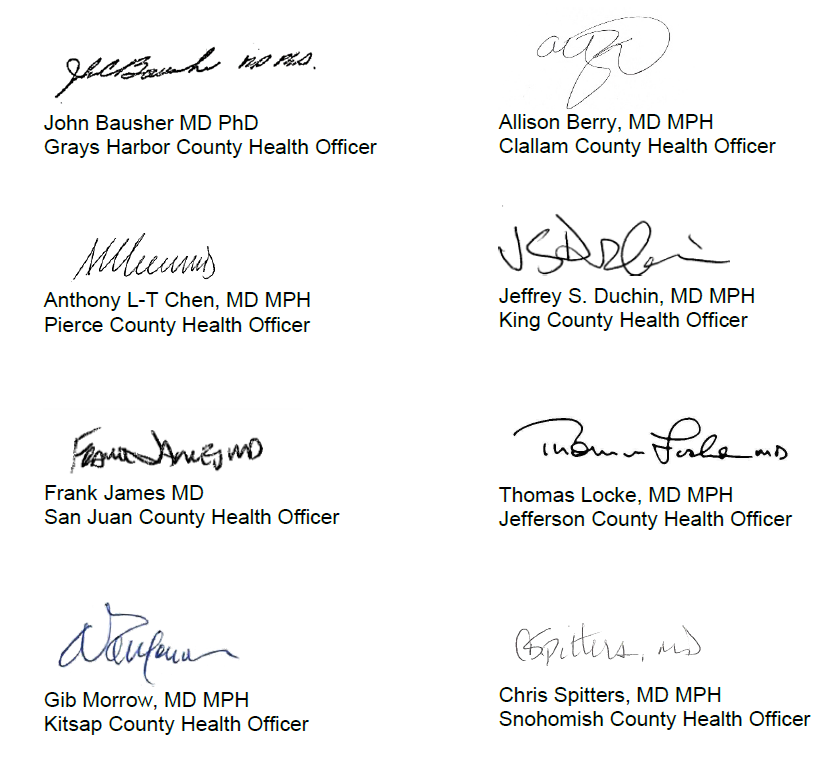 JRCBausher MD PhD.
John Bausher MD PhD
Grays Harbor County Health Officer
Allison Berry, MD MPH
Clallam County Health Officer
Anthony L-T Chen, MD MPH
Pierce County Health Officer
JSDuchin
Jeffrey S. Duchin, MD MPH
King County Health Officer
Frank James MD
Frank James MD
San Juan County Health Officer
Thomas Locke MD
Thomas Locke, MD MPH
Jefferson County Health Officer
Gib Morrow, MD MPH
Kitsap County Health Officer
CSpitters, MD
Chris Spitters, MD MPH
Snohomish County Health Officer